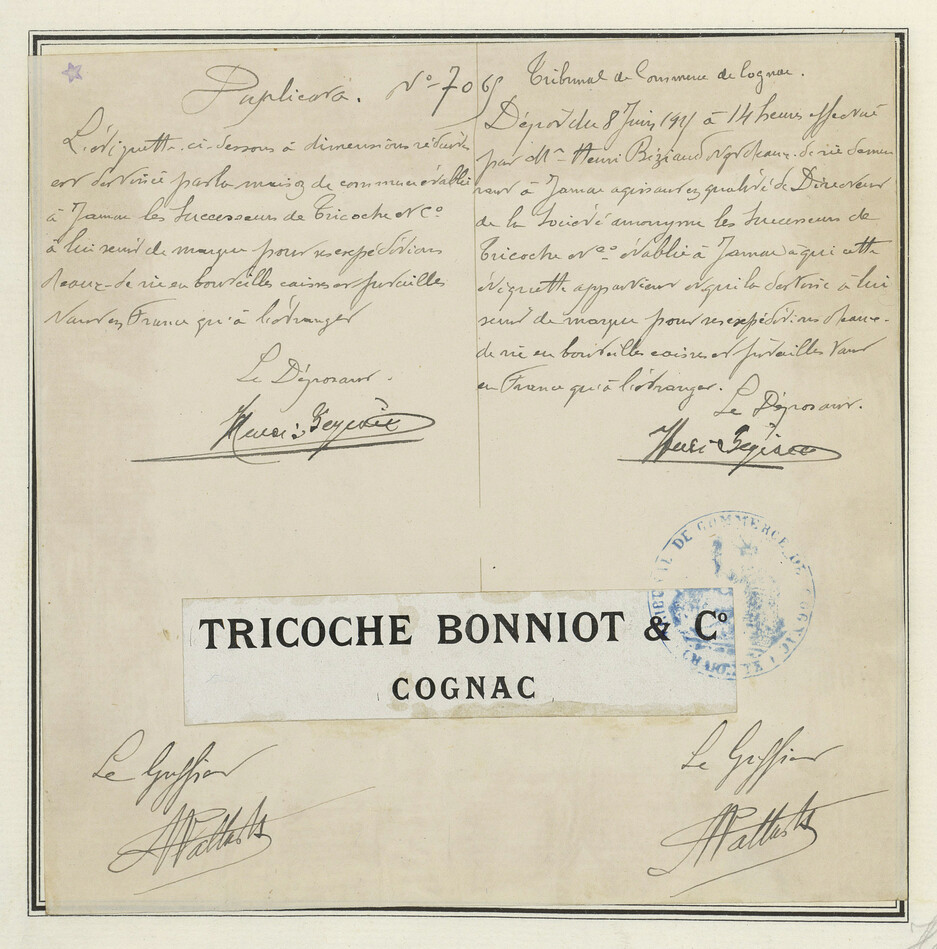 Duplicata. N° 7065
L'étiquette ci-dessous à dimensions réduites
est destinée par la maison de commerce établie
à Jarnac les Successeurs de Tricoche et C°
à lui servir de marque pour ses expéditions
d'eaux-de-vie en bouteilles caisses et futailles
tant en France qu'à l'étranger
Le Déposant.
Tribunal de Commerce de Cognac.
Dépôt du 8 Juin à 14 heures effectué
par Mr Henri négt d'eaux-de-vie demeu
rant à Jarnac agissant en qualité de Directeur
de la Société anonyme les Successeurs de
Tricoche et C° établie à Jarnac à qui cette
étiquette appartient et qui la destine à lui
servir de marque pour ses expéditions d'eaux-
de-vie en bouteilles caisses et futailles tant
en France qu'à l'étranger.
Le Déposant.
TRIBUNAL DE COMMERCE DE COGNAC
CHARENTE
TRICOCHE BONNIOT & C°
COGNAC
Le Greffier
Le Greffier